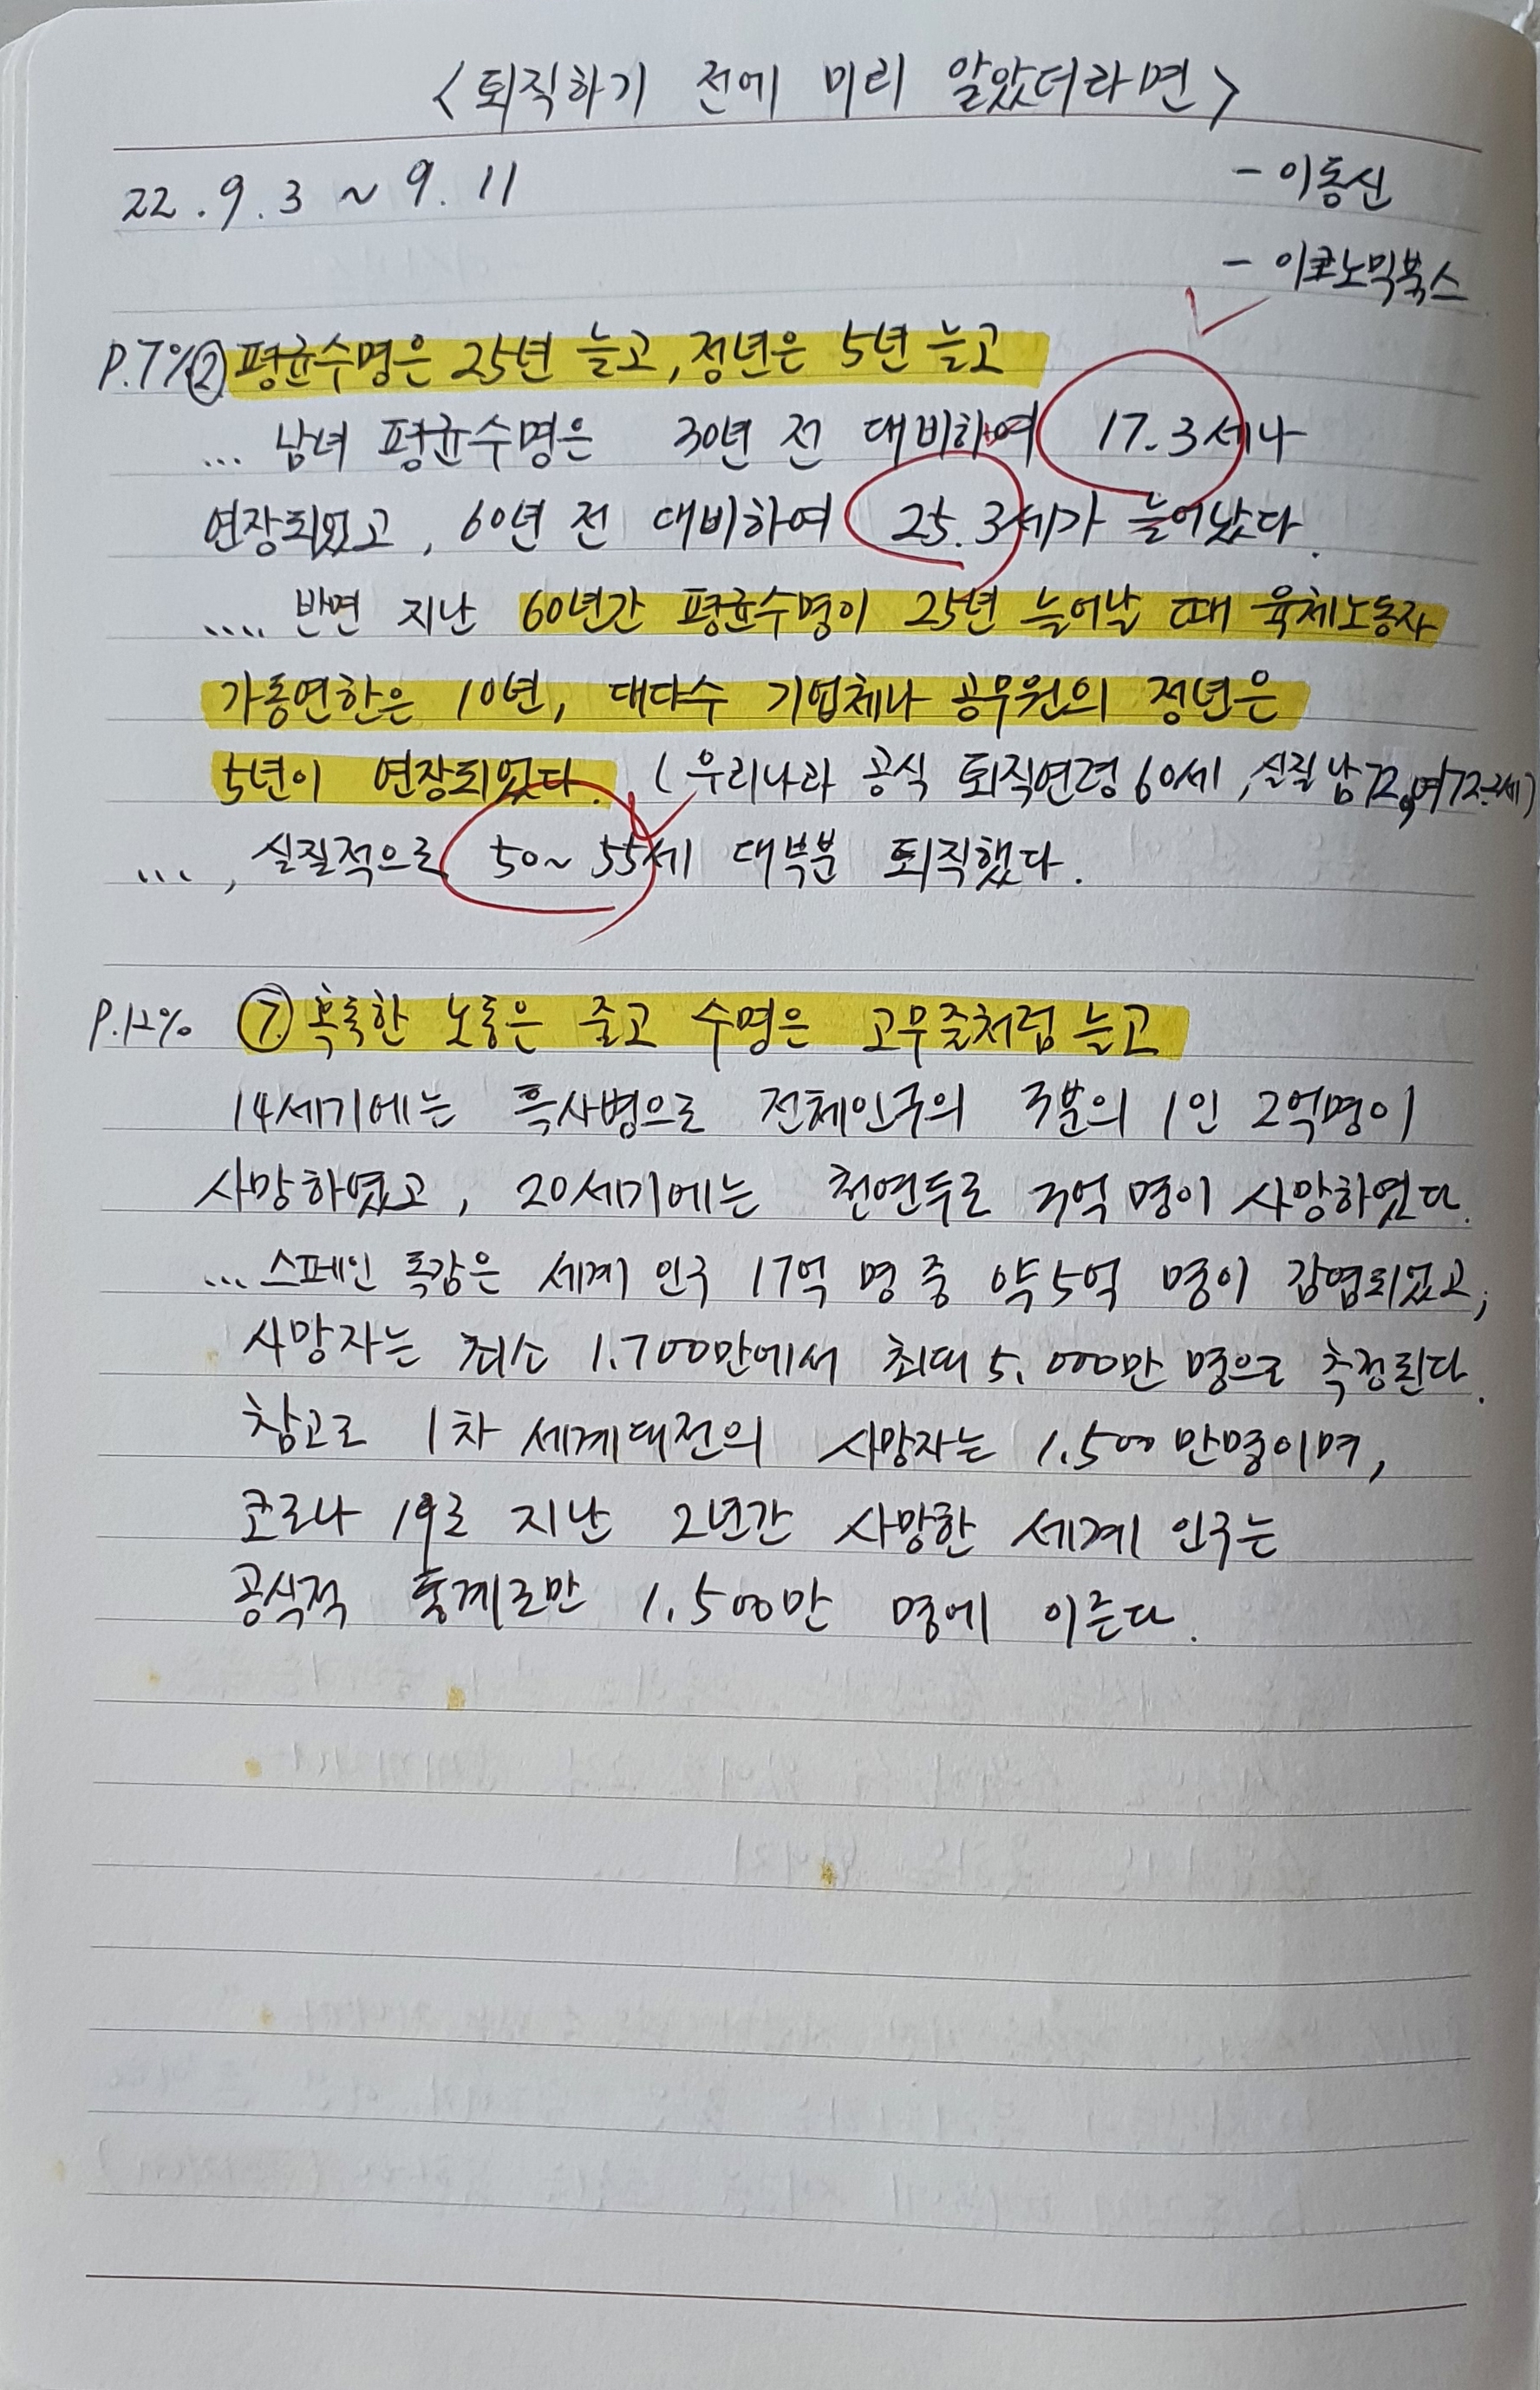 <퇴직하기 전에 미리 알았더라면>
22.9.3 ~ 9.11
- 이동신
- 이코노믹북스
P.7% ② 평균수명은 25년 늘고, 정년은 5년 늘고
... 남녀 평균수명은 30년 전 대비하여 17.3세나
연장되었고, 60년 전 대비하여 25.3세가 늘어났다.
.... 반면 지난 60년간 평균수명이 25년 늘어날 때 육체노동자
가동연한은 10년, 대다수 기업체나 공무원의 정년은
5년이 연장되었다. (우리나라 공식 퇴직연령 60세, 실질 남72, 여72.2세)
..., 실질적으로 50~55세 대부분 퇴직했다.
P.12% ⑦ 혹독한 노동은 줄고 수명은 고무줄처럼 늘고
14세기에는 흑사병으로 전체인구의 3분의 1인 2억명이
사망하였고, 20세기에는 천연두로 3억 명이 사망하였다.
... 스페인 독감은 세계 인구 17억 명 중 약 5억 명이 감염되었고,
사망자는 최소 1.700만에서 최대 5.000만 명으로 추정된다.
참고로 1차 세계대전의 사망자는 1.500만명이며,
코로나 19로 지난 2년간 사망한 세계 인구는
공식적 통계로만 1.500만 명에 이른다.